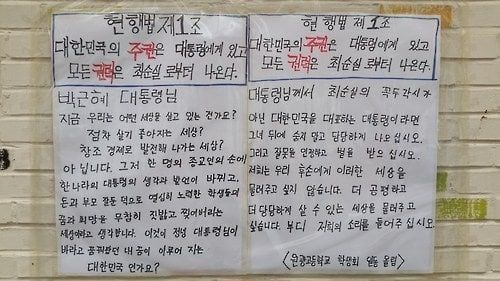 현행법 제1조
대한민국의 주권은 대통령에게 있고
모든 권력은 최순실로부터 나온다.
박근혜 대통령님
지금 우리는 어떤 세상을 살고 있는 건가요?
점차 살기 좋아지는 세상?
창조 경제로 발전해 나가는 세상?
아닙니다. 그저 한 명의 종교인의 손에
한 나라의 대통령의 생각과 발언이 바뀌고,
돈과 부모 잘 둔 덕으로 열심히 노력한 학생들의
꿈과 희망을 무참히 짓밟고 찢어버리는
세상이라고 생각합니다. 이것이 정녕 대통령님이
바라고 꿈꿔왔던 내 꿈이 이루어 지는
대한민국 인가요?
현행법 제1조
대한민국의 주권은 대통령에게 있고
모든 권력은 최순실로부터 나온다.
대통령님께서 최순실의 꼭두각시가
아닌 대한민국을 대표하는 대통령이라면
그녀 뒤에 숨지 말고 당당하게 나오십시오.
그리고 잘못을 인정하고 벌을 받으십시오.
저희는 우리 후손에게 이러한 세상을
물려주고 싶지 않습니다. 더 공평하고
더 당당하게 살 수 있는 세상을 물려주고
싶습니다. 부디 저희의 소리를 들어주십시오.
<문광고등학교 학생회 일동 올림>